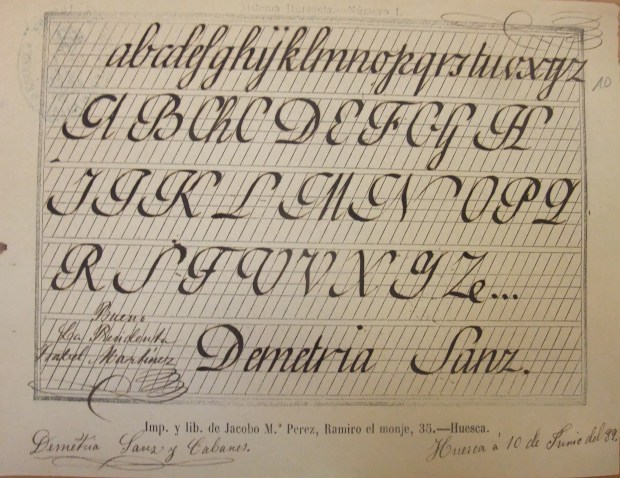 Número 1.
abcdefghijklmnopqrstuvxyz
10
A B Ch C D E F G H
J I K L M N O P Q
R S T U V X Y Ze...
Bueno
La Presidenta
Martinez
Demetria Sanz.
Imp. y lib. de Jacobo M.ª Perez, Ramiro el monje, 35.—Huesca.
Demetria Sanz y Cabanes.
Huesca á 10 de Junio del 99.